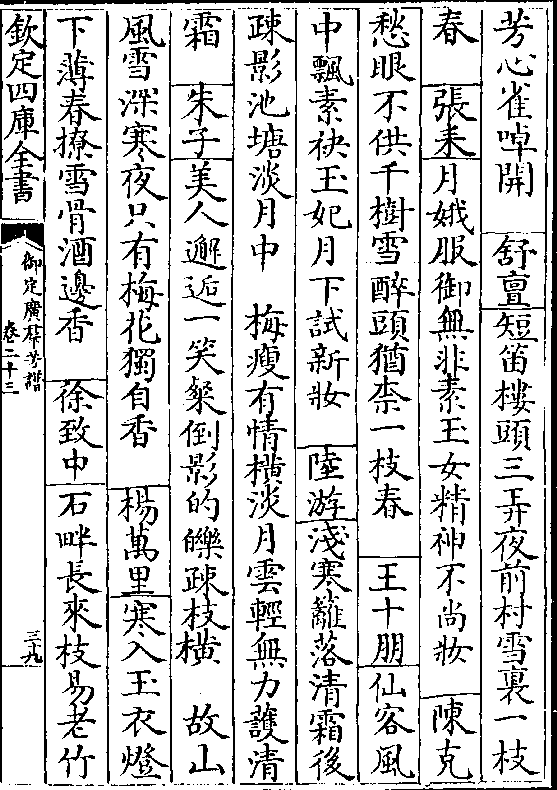 芳心雀啅開　舒亶短笛樓頭三弄夜前村雪裏一枝
春　張耒月娥服御無非素玉女精神不尚妝　陳克
愁眼不供千樹雪醉頭猶柰一枝春　王十朋仙客風
中飄素袂玉妃月下試新妝　陸游淺寒籬落清霜後
疎影池塘淡月中　梅瘦有情横淡月雲輕無力護清
霜　朱子美人邂逅一笑粲倒影的皪疎枝横　故山
風雪深寒夜只有梅花獨自香　楊萬里寒入玉衣燈
下薄春撩雪骨酒邊香　徐致中石畔長來枝易老竹
欽定四庫全書
御定廣羣芳譜
卷二十三
三九